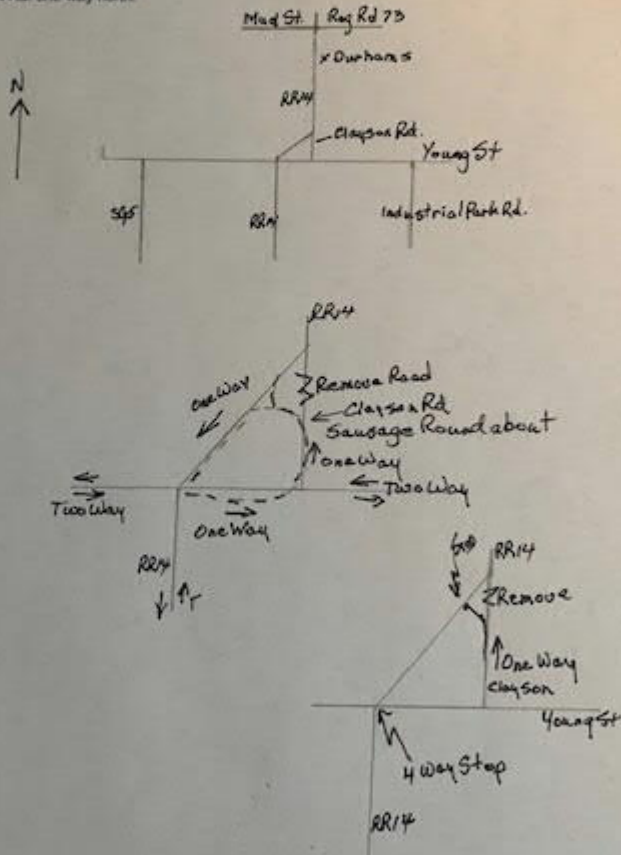 Mud St. Reg Rd 73
x Durhams
N
RR14
Clayson Rd.
Young St
SG5
RR14
Industrial Park Rd.
RR14
one Way
Remove Road
Clayson Rd
Sausage Roundabout
One Way
Two Way
Two Way
One Way
RR14
RR14
Remove
One Way
Clayson
Young St
4 Way Stop
RR14